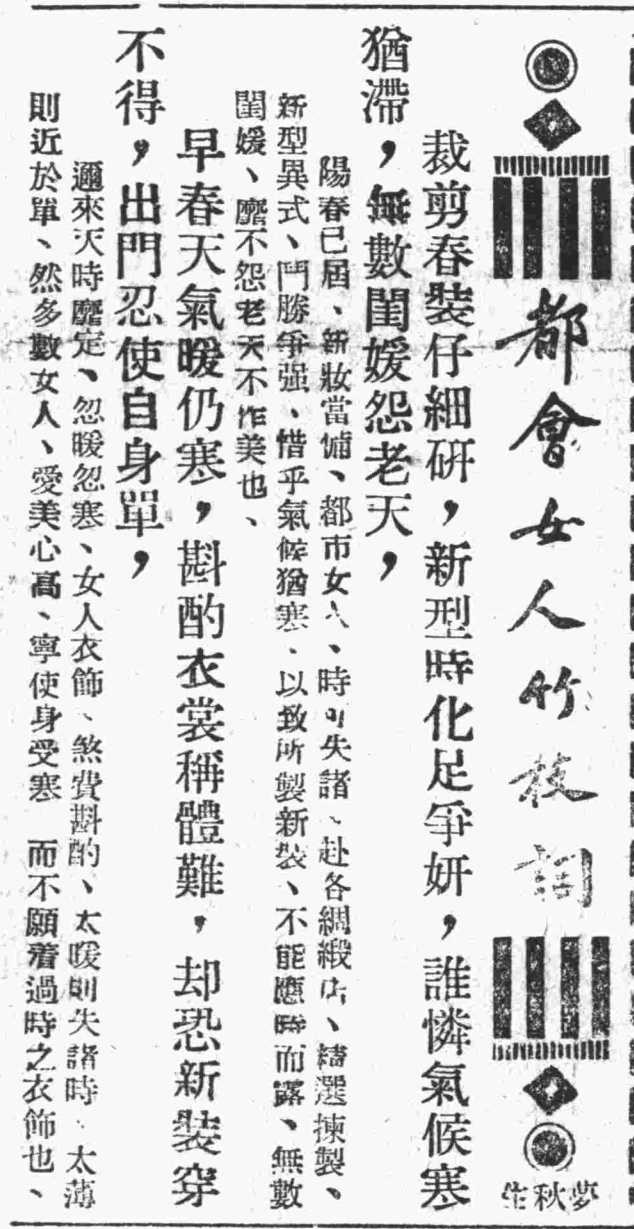 都會女人竹枝詞
夢秋生
裁剪春裝仔細研，新型時化足爭妍，誰憐氣候寒
猶滯，無數閨媛怨老天，
陽春已屆、新妝當備、都市女人、時可失諸、赴各綢緞店、綺選揀製、
新型異式、鬥勝爭强、惜乎氣候猶寒、以致所製新裝、不能應時而露、無數
閨媛、靡不怨老天不作美也、
早春天氣暖仍寒，斟酌衣裳稱體難，却恐新裝穿
不得，出門忍使自身單，
邇來天時靡定、忽暖忽寒、女人衣飾、煞費斟酌、太暖則失諸時、太薄
則近於單、然多數女人、愛美心高、寧使身受寒　而不願着過時之衣飾也、